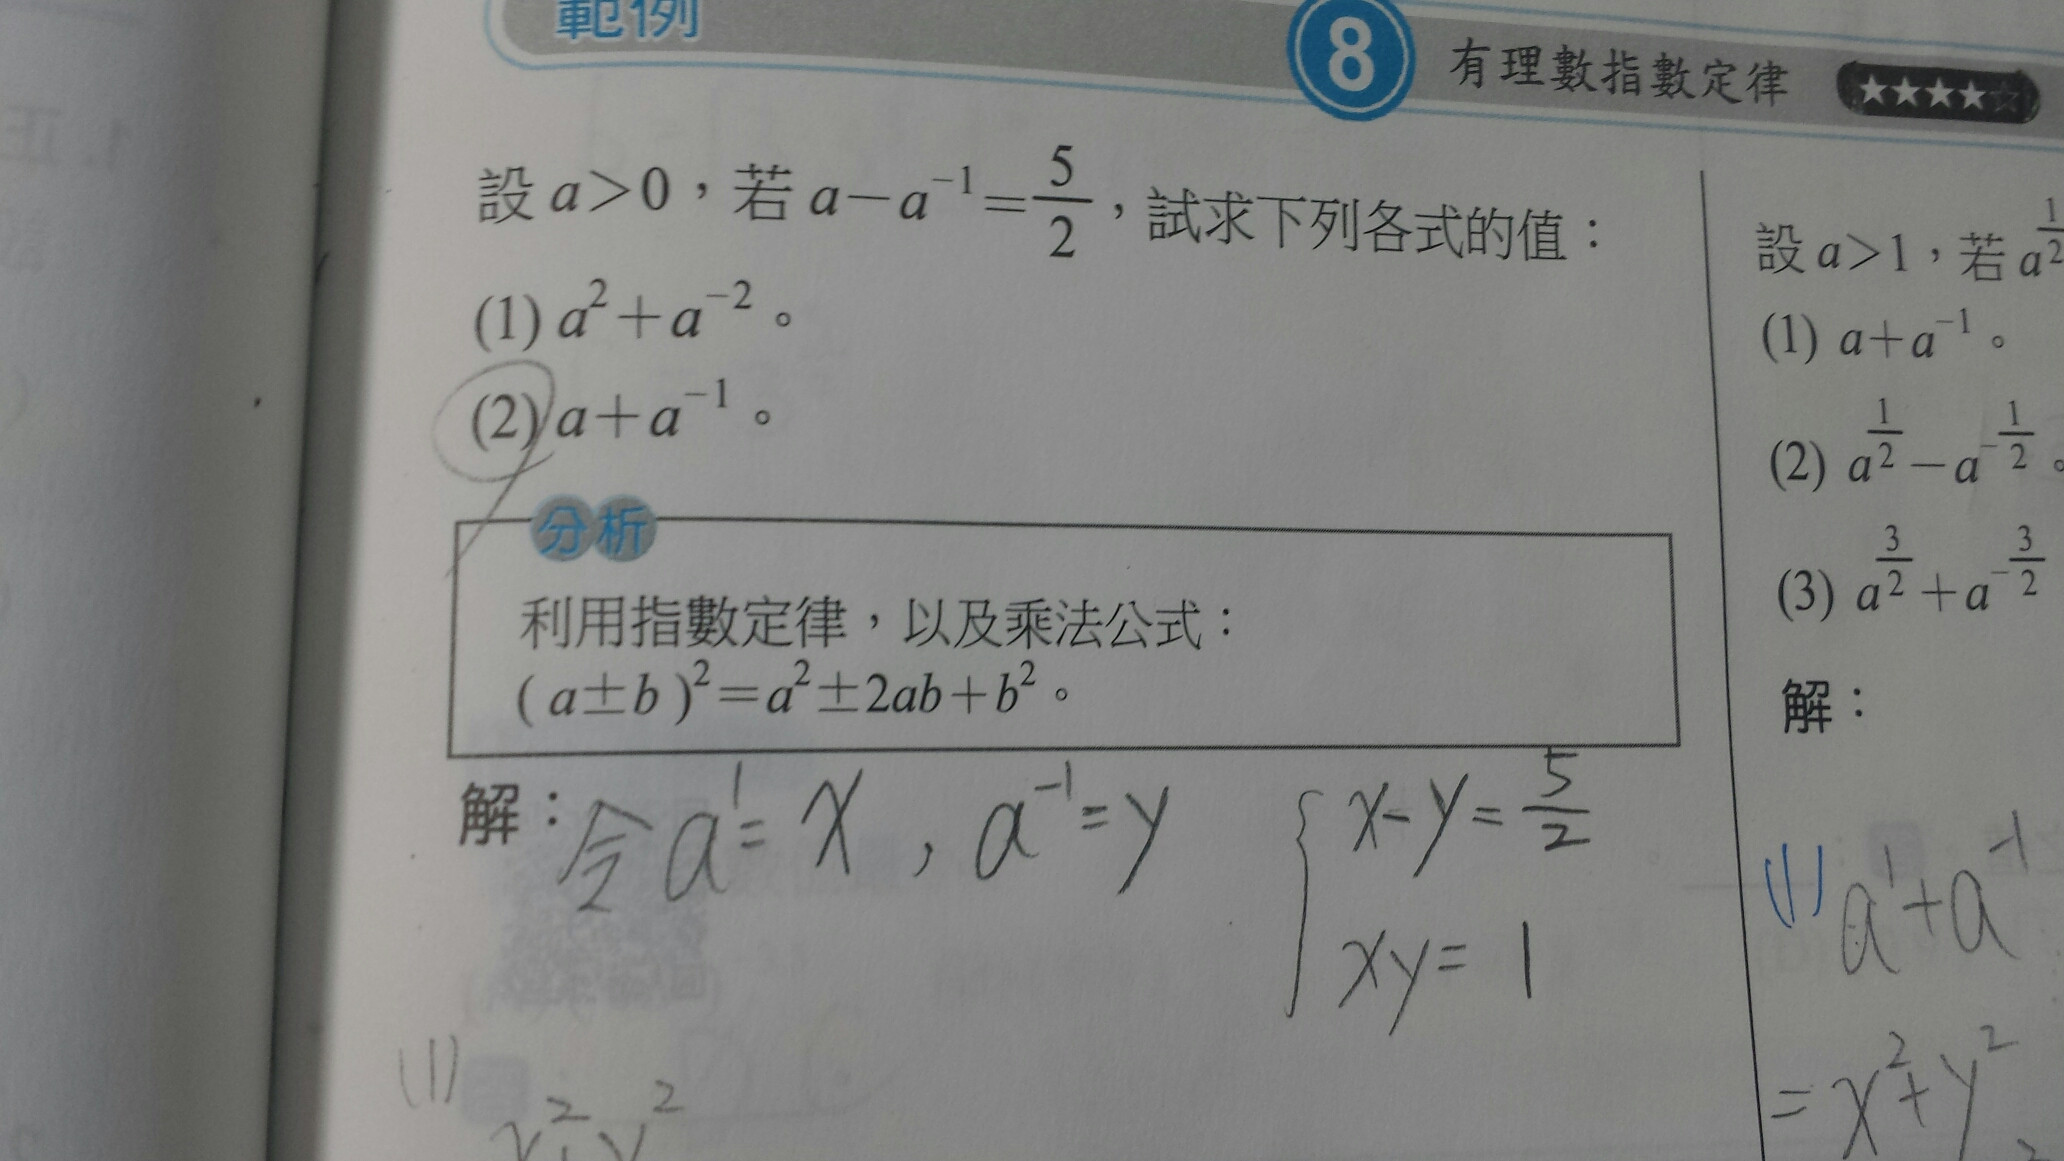 範例 8 有理數指數定律 ★★★★☆
設 a>0，若 a−a⁻¹=5/2，試求下列各式的值：
(1) a²+a⁻²。
(2) a+a⁻¹。
分析
利用指數定律，以及乘法公式：
(a±b)²=a²±2ab+b²。
解：令 a¹=x，a⁻¹=y
{ x−y=5/2
xy=1
(1)
x²+y²
設 a>1，若 a^(1/2)
(1) a+a⁻¹。
(2) a^(1/2)−a^(−1/2)。
(3) a^(3/2)+a^(−3/2)
解：
(1) a¹+a⁻¹
=x²+y²